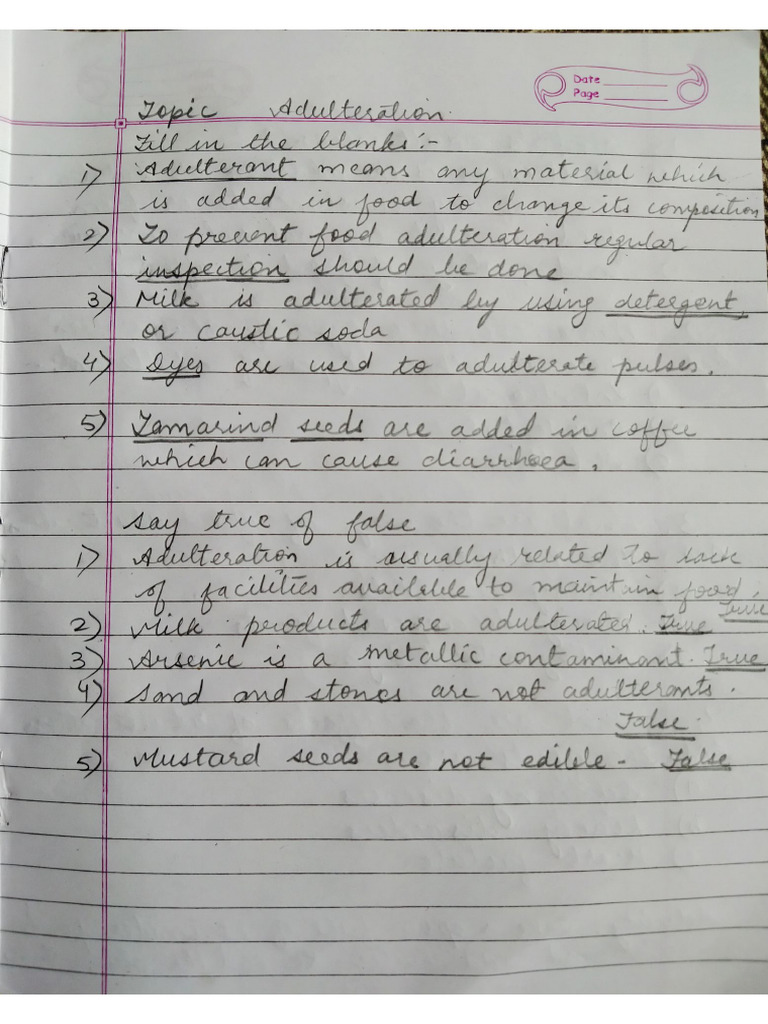 Date
Page
Topic Adulteration.
Fill in the blanks :-
1) Adulterant means any material which
is added in food to change its composition
2) To prevent food adulteration regular
inspection should be done
3) Milk is adulterated by using detergent,
or caustic soda
4) Dyes are used to adulterate pulses.
5) Tamarind seeds are added in coffee
which can cause diarrhoea.
Say true of false
1) Adulteration is usually related to lack
of facilities available to maintain food.
True
2) Milk products are adulterated. True
3) Arsenic is a metallic contaminant. True
4) Sand and stones are not adulterants.
False.
5) Mustard seeds are not edible - False